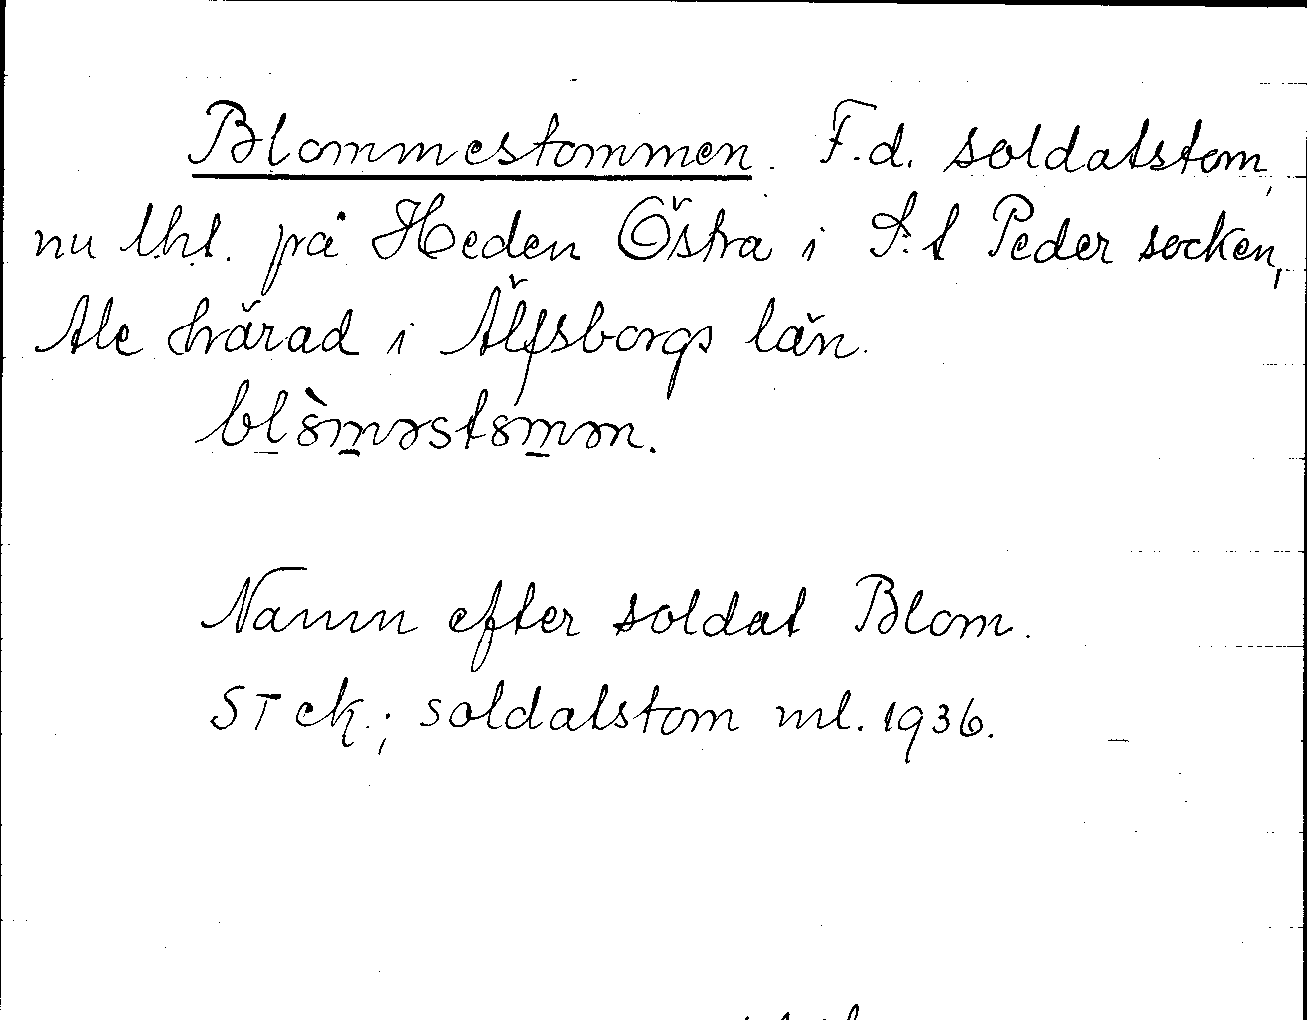 Blommestommen. F.d. soldatstom,
nu lht. på Heden Östra i S:t Peder socken,
Ale härad i Älfsborgs län.
Namn efter soldat Blom.
ST ek.; soldatstom ml. 1936.